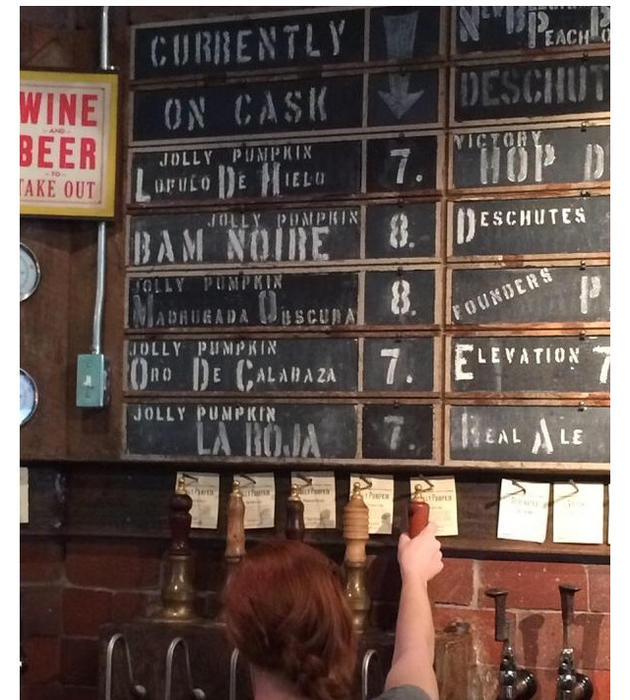 WINE
AND
BEER
TO
TAKE OUT
CURRENTLY
ON CASK
JOLLY PUMPKIN
LUPULO DE HIELO 7.
JOLLY PUMPKIN
BAM NOIRE 8.
JOLLY PUMPKIN
MADRUGADA OBSCURA 8.
JOLLY PUMPKIN
ORO DE CALABAZA 7.
JOLLY PUMPKIN
LA ROJA 7.
PEACH
DESCHUT
VICTORY
HOP D
DESCHUTES
FOUNDERS P
ELEVATION 7
REAL ALE